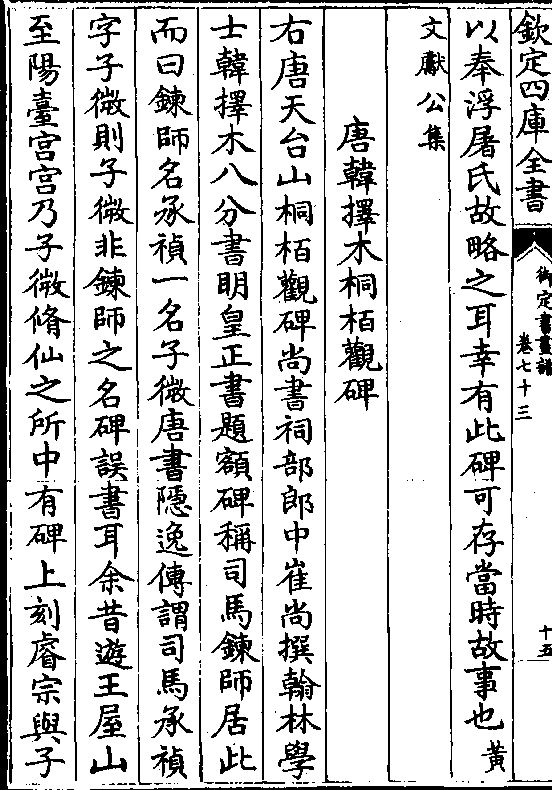 欽定四庫全書
御定書畫譜
卷七十三
十五
以奉浮屠氏故略之耳幸有此碑可存當時故事也黃
文獻公集
唐韓擇木桐栢觀碑
右唐天台山桐栢觀碑尚書祠部郎中崔尚撰翰林學
士韓擇木八分書明皇正書題額碑稱司馬鍊師居此
而曰鍊師名承禎一名子微唐書隱逸傳謂司馬承禎
字子微則子微非鍊師之名碑誤書耳余昔遊王屋山
至陽臺宮宮乃子微脩仙之所中有碑上刻睿宗與子